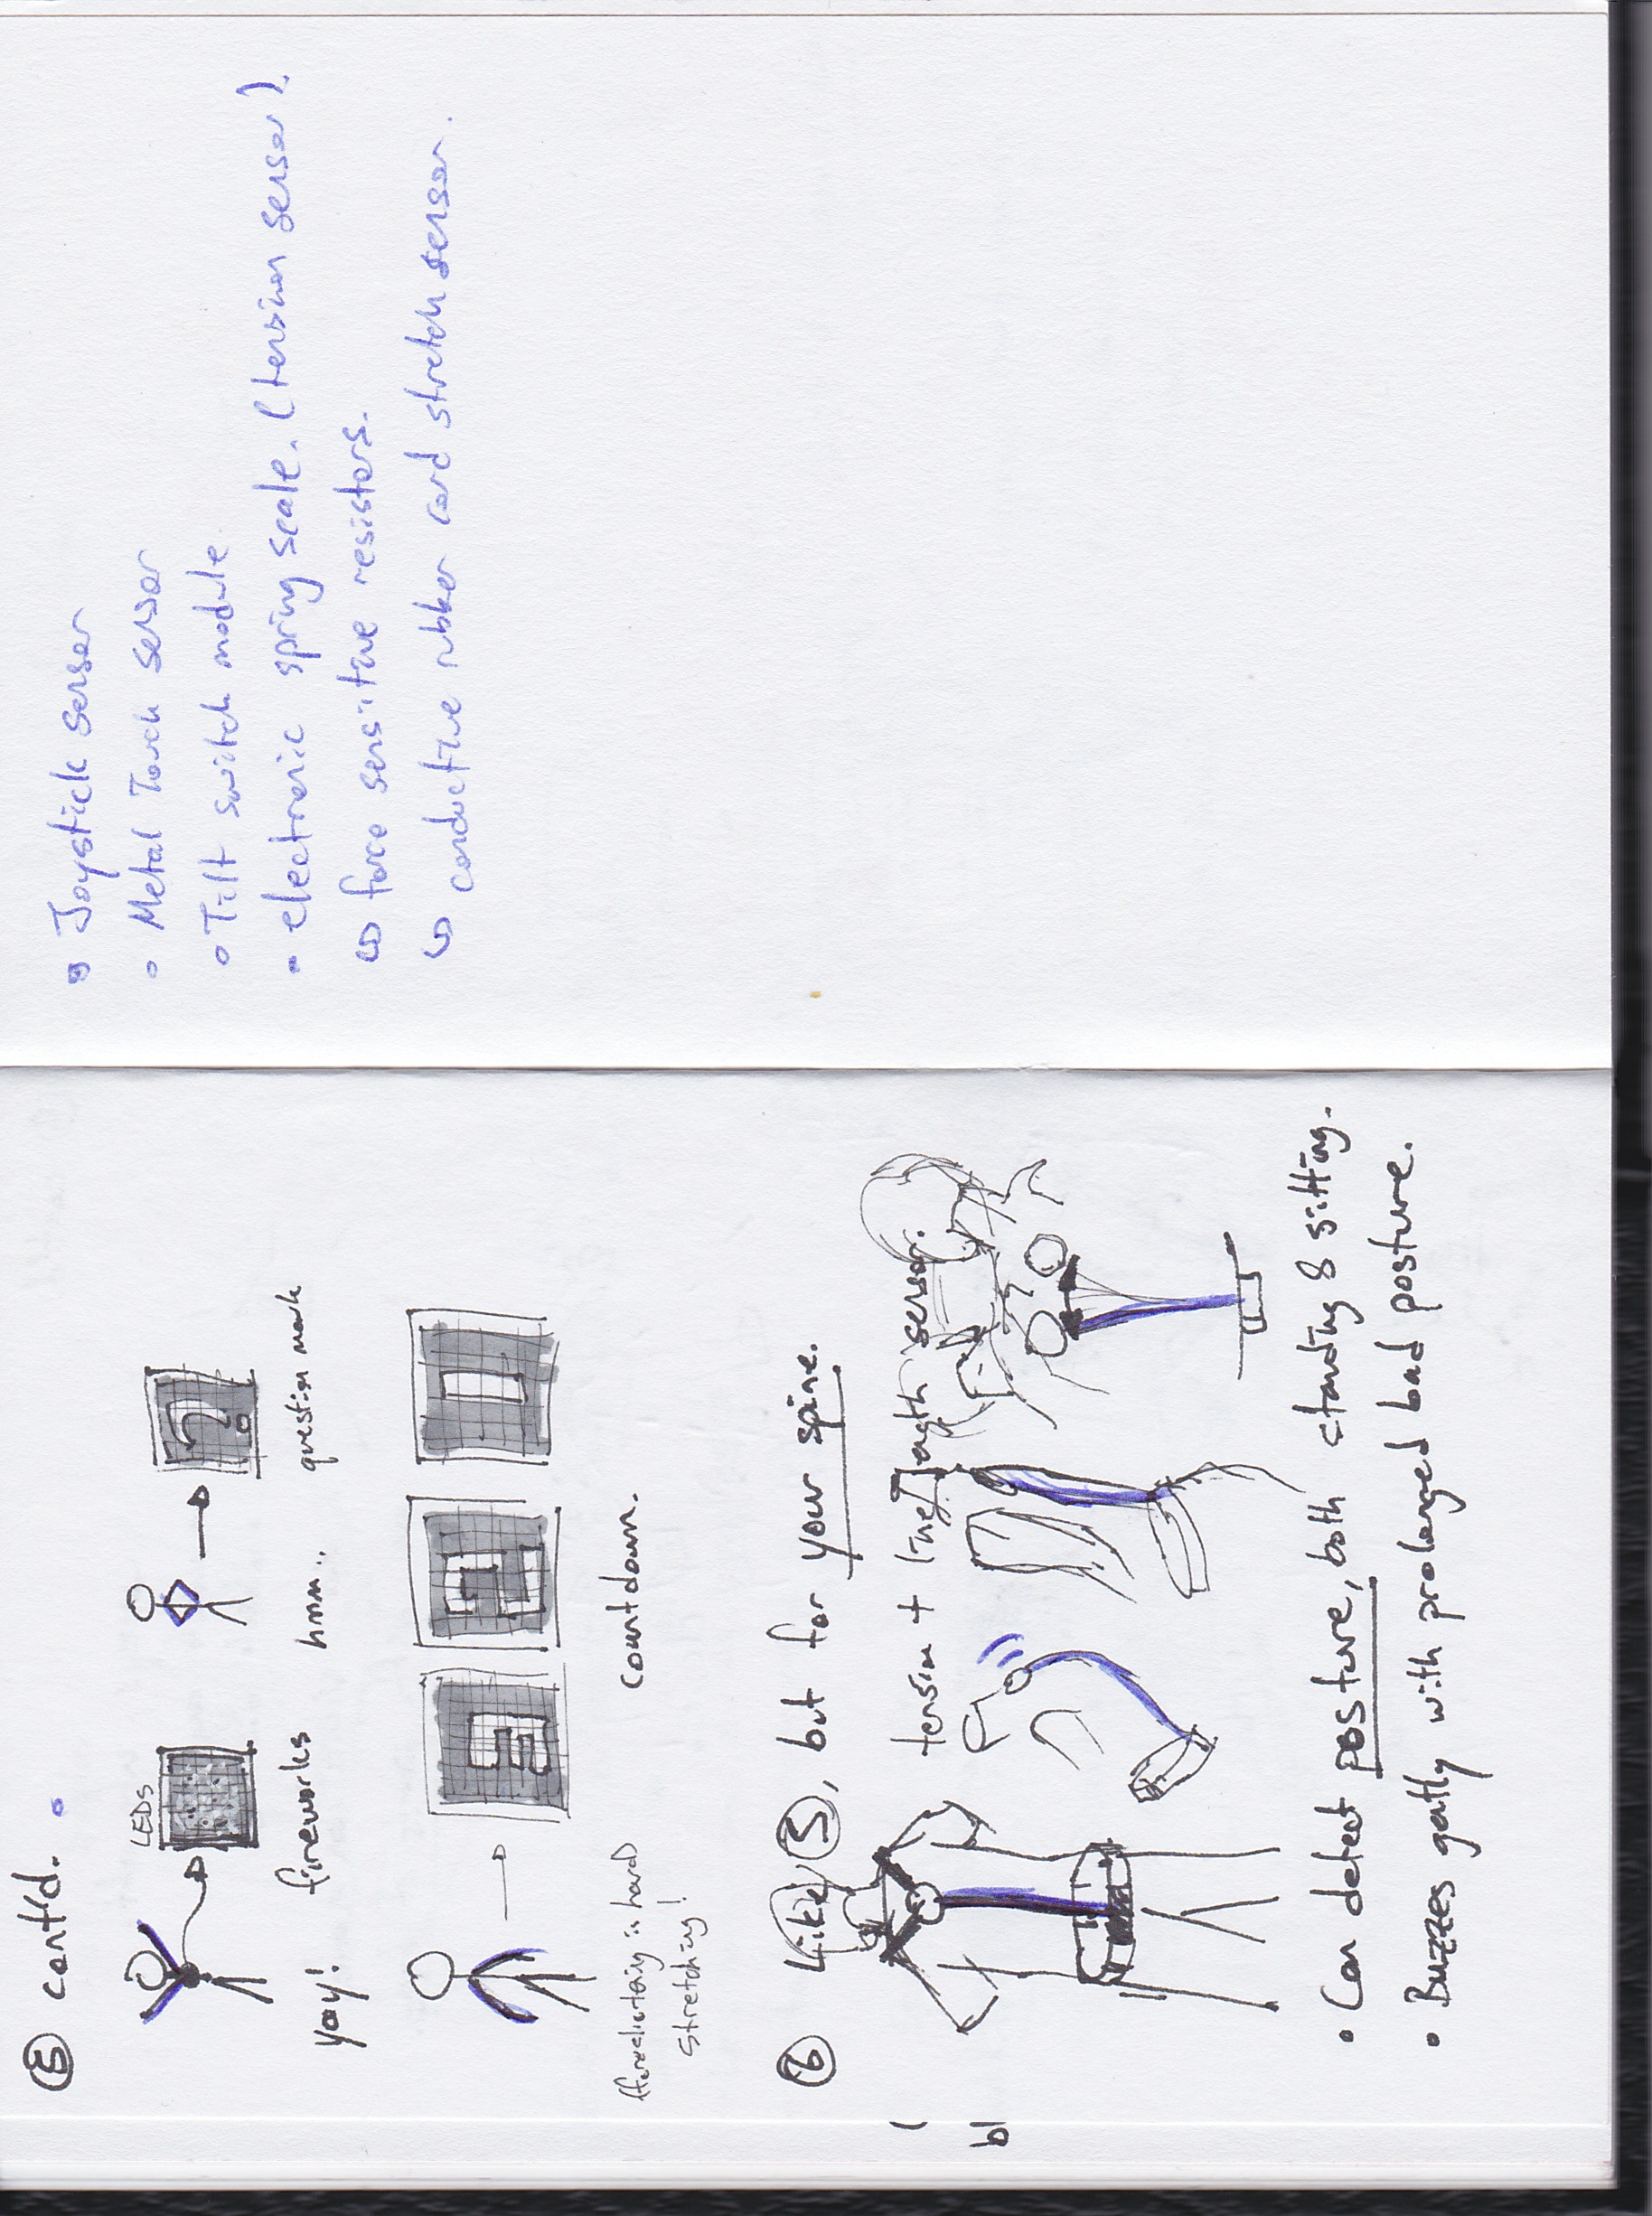 ⑤ cont'd.
LEDs
?
yay!
fireworks
hmm..
question mark
3 2 1
(foreshortening is hard)
stretching!
countdown.
⑥ Like ⑤, but for your spine.
tension + line length sensor.
• Can detect posture, both standing & sitting.
• Buzzes gently with prolonged bad posture.
• Joystick sensor
• Metal Touch sensor
• Tilt switch module
• electronic spring scale. (tension sensor).
↳ force sensitive resistors.
↳ conductive rubber cord stretch sensor.